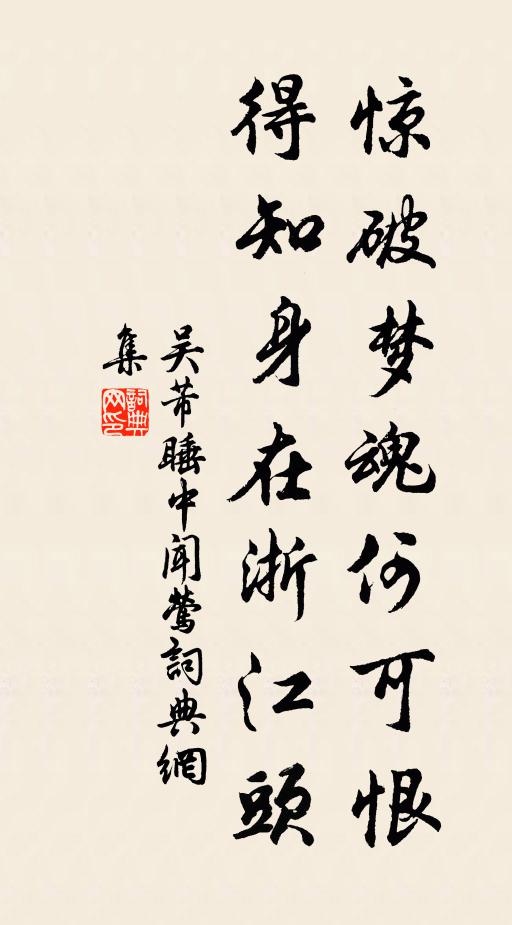 惊破梦魂何可恨
得知身在浙江頭
吴芾睡中闻莺詞典網
集
詞典网印